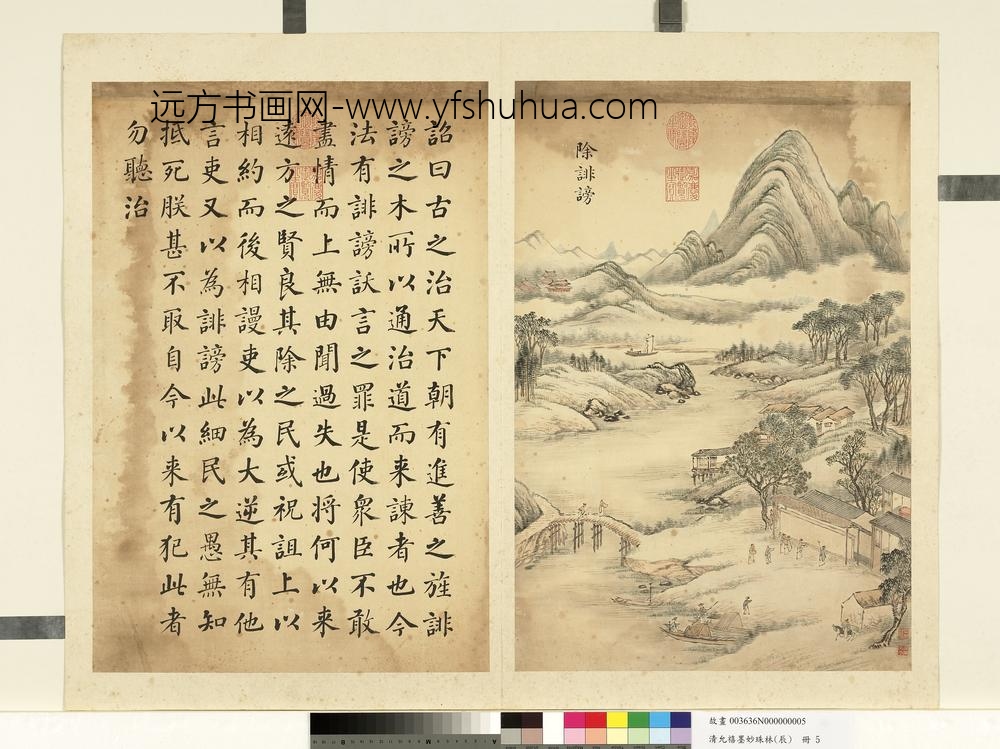 远方书画网-www.yfshuhua.com
除誹謗
詔曰古之治天下朝有進善之旌誹
謗之木所以通治道而来諫者也今
法有誹謗訞言之罪是使衆臣不敢
盡情而上無由聞過失也将何以来
遠方之賢良其除之民或祝詛上以
相約而後相謾吏以為大逆其有他
言吏又以為誹謗此細民之愚無知
抵死朕甚不取自今以来有犯此者
勿聽治
故畫 003636N000000005
清允禧墨妙珠林(辰) 冊 5